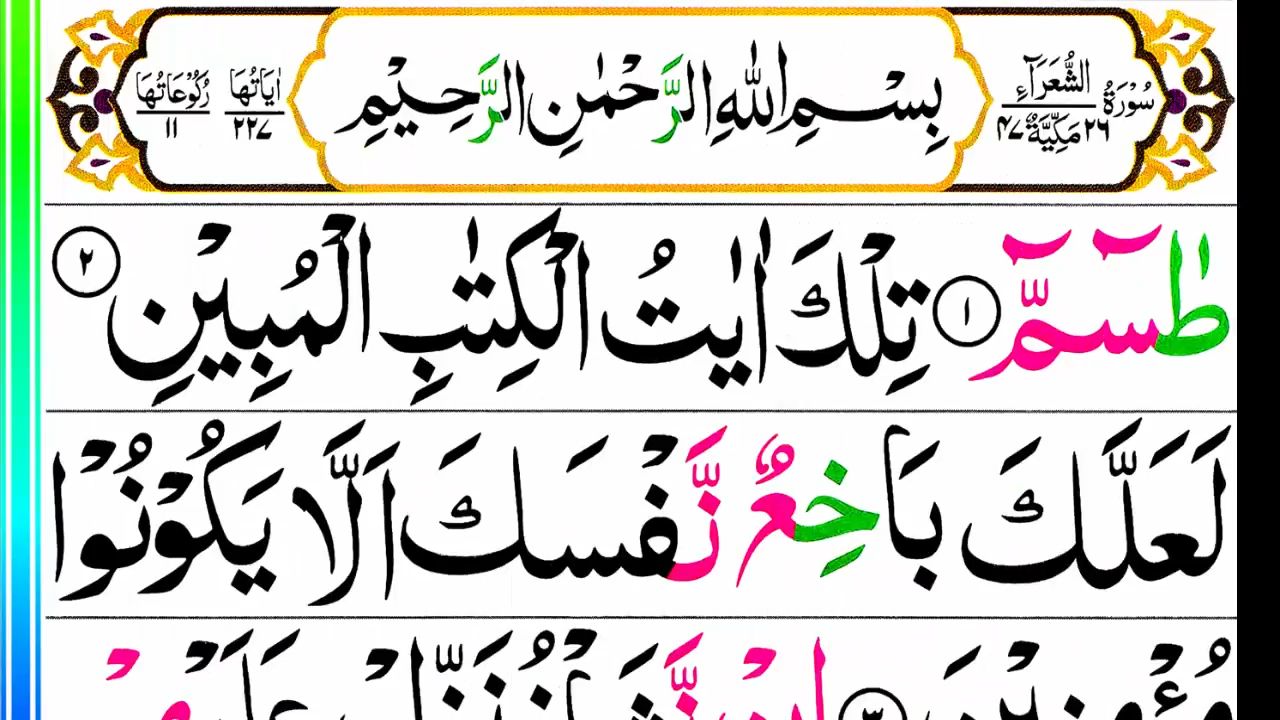 سُوْرَةُ الشُّعَرَآءِ
٢٦ مَكِّيَّةٌ ٤٧
بِسْمِ اللّٰهِ الرَّحْمٰنِ الرَّحِيْمِ
اٰيَاتُهَا ٢٢٧
رُكُوْعَاتُهَا ١١
طٰسٓمّٓ ١ تِلْكَ اٰيٰتُ الْكِتٰبِ الْمُبِيْنِ ٢
لَعَلَّكَ بَاخِعٌ نَّفْسَكَ اَلَّا يَكُوْنُوْا
مُؤْمِنِيْنَ ٣ اِنْ نَّشَاْ نُنَزِّلْ عَلَيْ